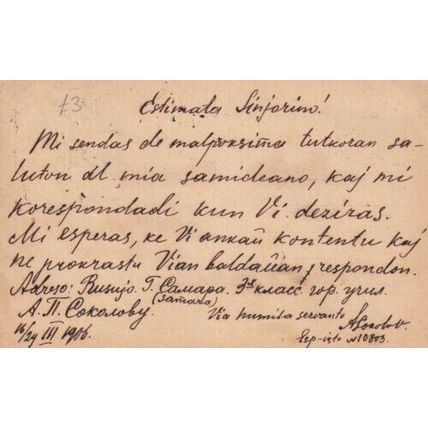 £3
Estimata Sinjorino!
Mi sendas de malproksima tutkoran sa-
luton al mia samideano, kaj mi
korespondadi kun Vi deziras.
Mi esperas, ke Vi ankaŭ kontentu kaj
ne prokrastu Vian baldaŭan respondon.
Adreso: Rusujo. Г. Самара. 3й класс. гор. учил.
(Samara)
А. П. Соколову. Via humila servanto
A. Sokolov.
16/29 III 1906. Esp-isto N 10803.